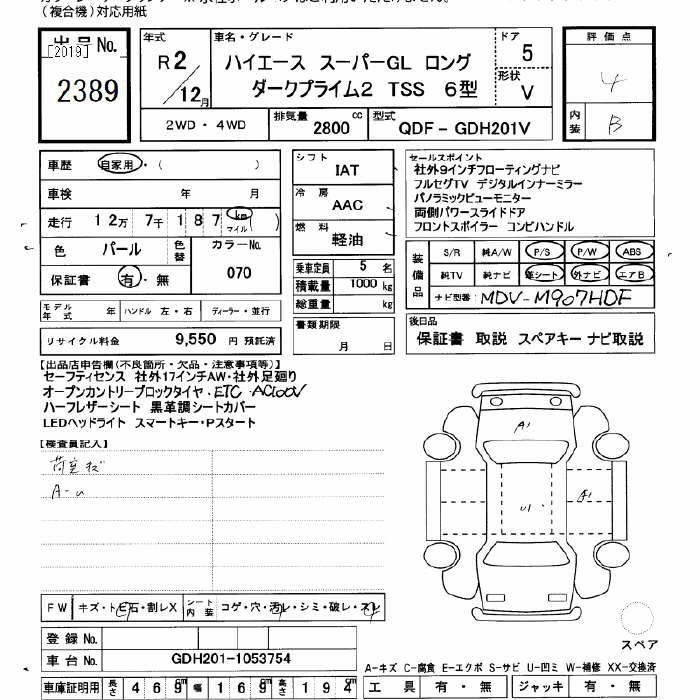 (複合機)対応用紙
出品No.
[2019]
2389
年式
R2/12月
車名・グレード
ハイエース スーパーGL ロング
ダークプライム2 TSS 6型
ドア
5
形状
V
2WD・4WD
排気量 2800 cc
型式 QDF-GDH201V
評価点
4
内装
B
車歴 自家用・( )
車検 年 月
走行 12万7千187 km マイル( )
色 パール
色替
カラーNo.
070
保証書 有・無
モデル年式 年
ハンドル 左・右
ディーラー・並行
リサイクル料金 9,550 円 預託済
シフト
IAT
冷房
AAC
燃料
軽油
乗車定員 5 名
積載量 1000 kg
総重量 kg
書類期限
月 日
セールスポイント
社外9インチフローティングナビ
フルセグTV デジタルインナーミラー
パノラミックビューモニター
両側パワースライドドア
フロントスポイラー コンビハンドル
装備品
S/R 純A/W P/S P/W ABS
純TV 純ナビ 革シート 外ナビ エアB
ナビ型番 MDV-M907HDF
後日品
保証書 取説 スペアキー ナビ取説
【出品店申告欄(不良箇所・欠品・注意事項等)】
セーフティセンス 社外17インチAW・社外足廻り
オープンカントリーブロックタイヤ・ETC・AC100V
ハーフレザーシート 黒革調シートカバー
LEDヘッドライト スマートキー・Pスタート
【検査員記入】
荷室キズ
A-U
A1
U1
A1
FW キズ・トビ石・割レX
シート内装 コゲ・穴・汚レ・シミ・破レ・スレ
登録No.
車台No. GDH201-1053754
車庫証明用 長さ 469cm 幅 169cm 高さ 194cm
スペア
A-キズ C-腐食 E-エクボ S-サビ U-凹ミ W-補修 XX-交換済
工具 有・無 ジャッキ 有・無